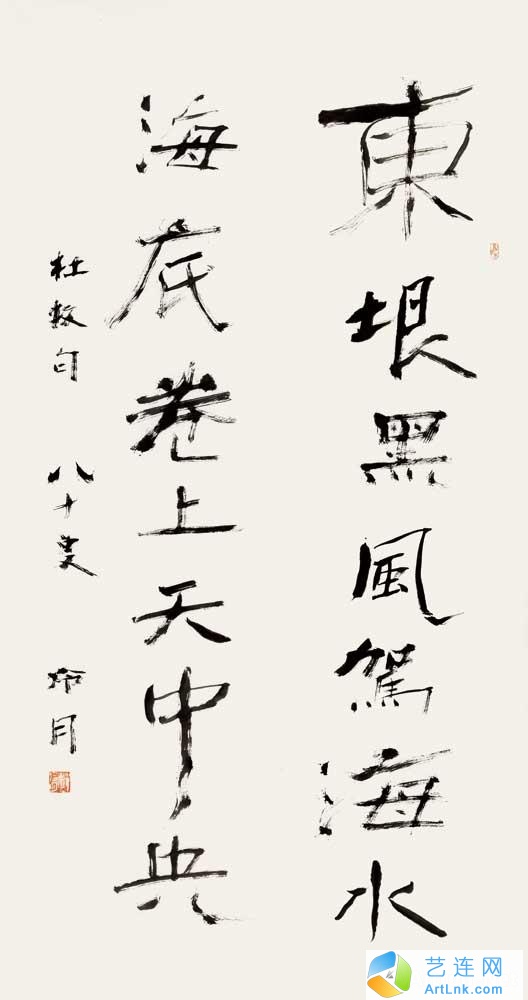 東垠黑風駕海水
海底卷上天中央
杜牧句 八十叟
艺连网
ArtLnk.com